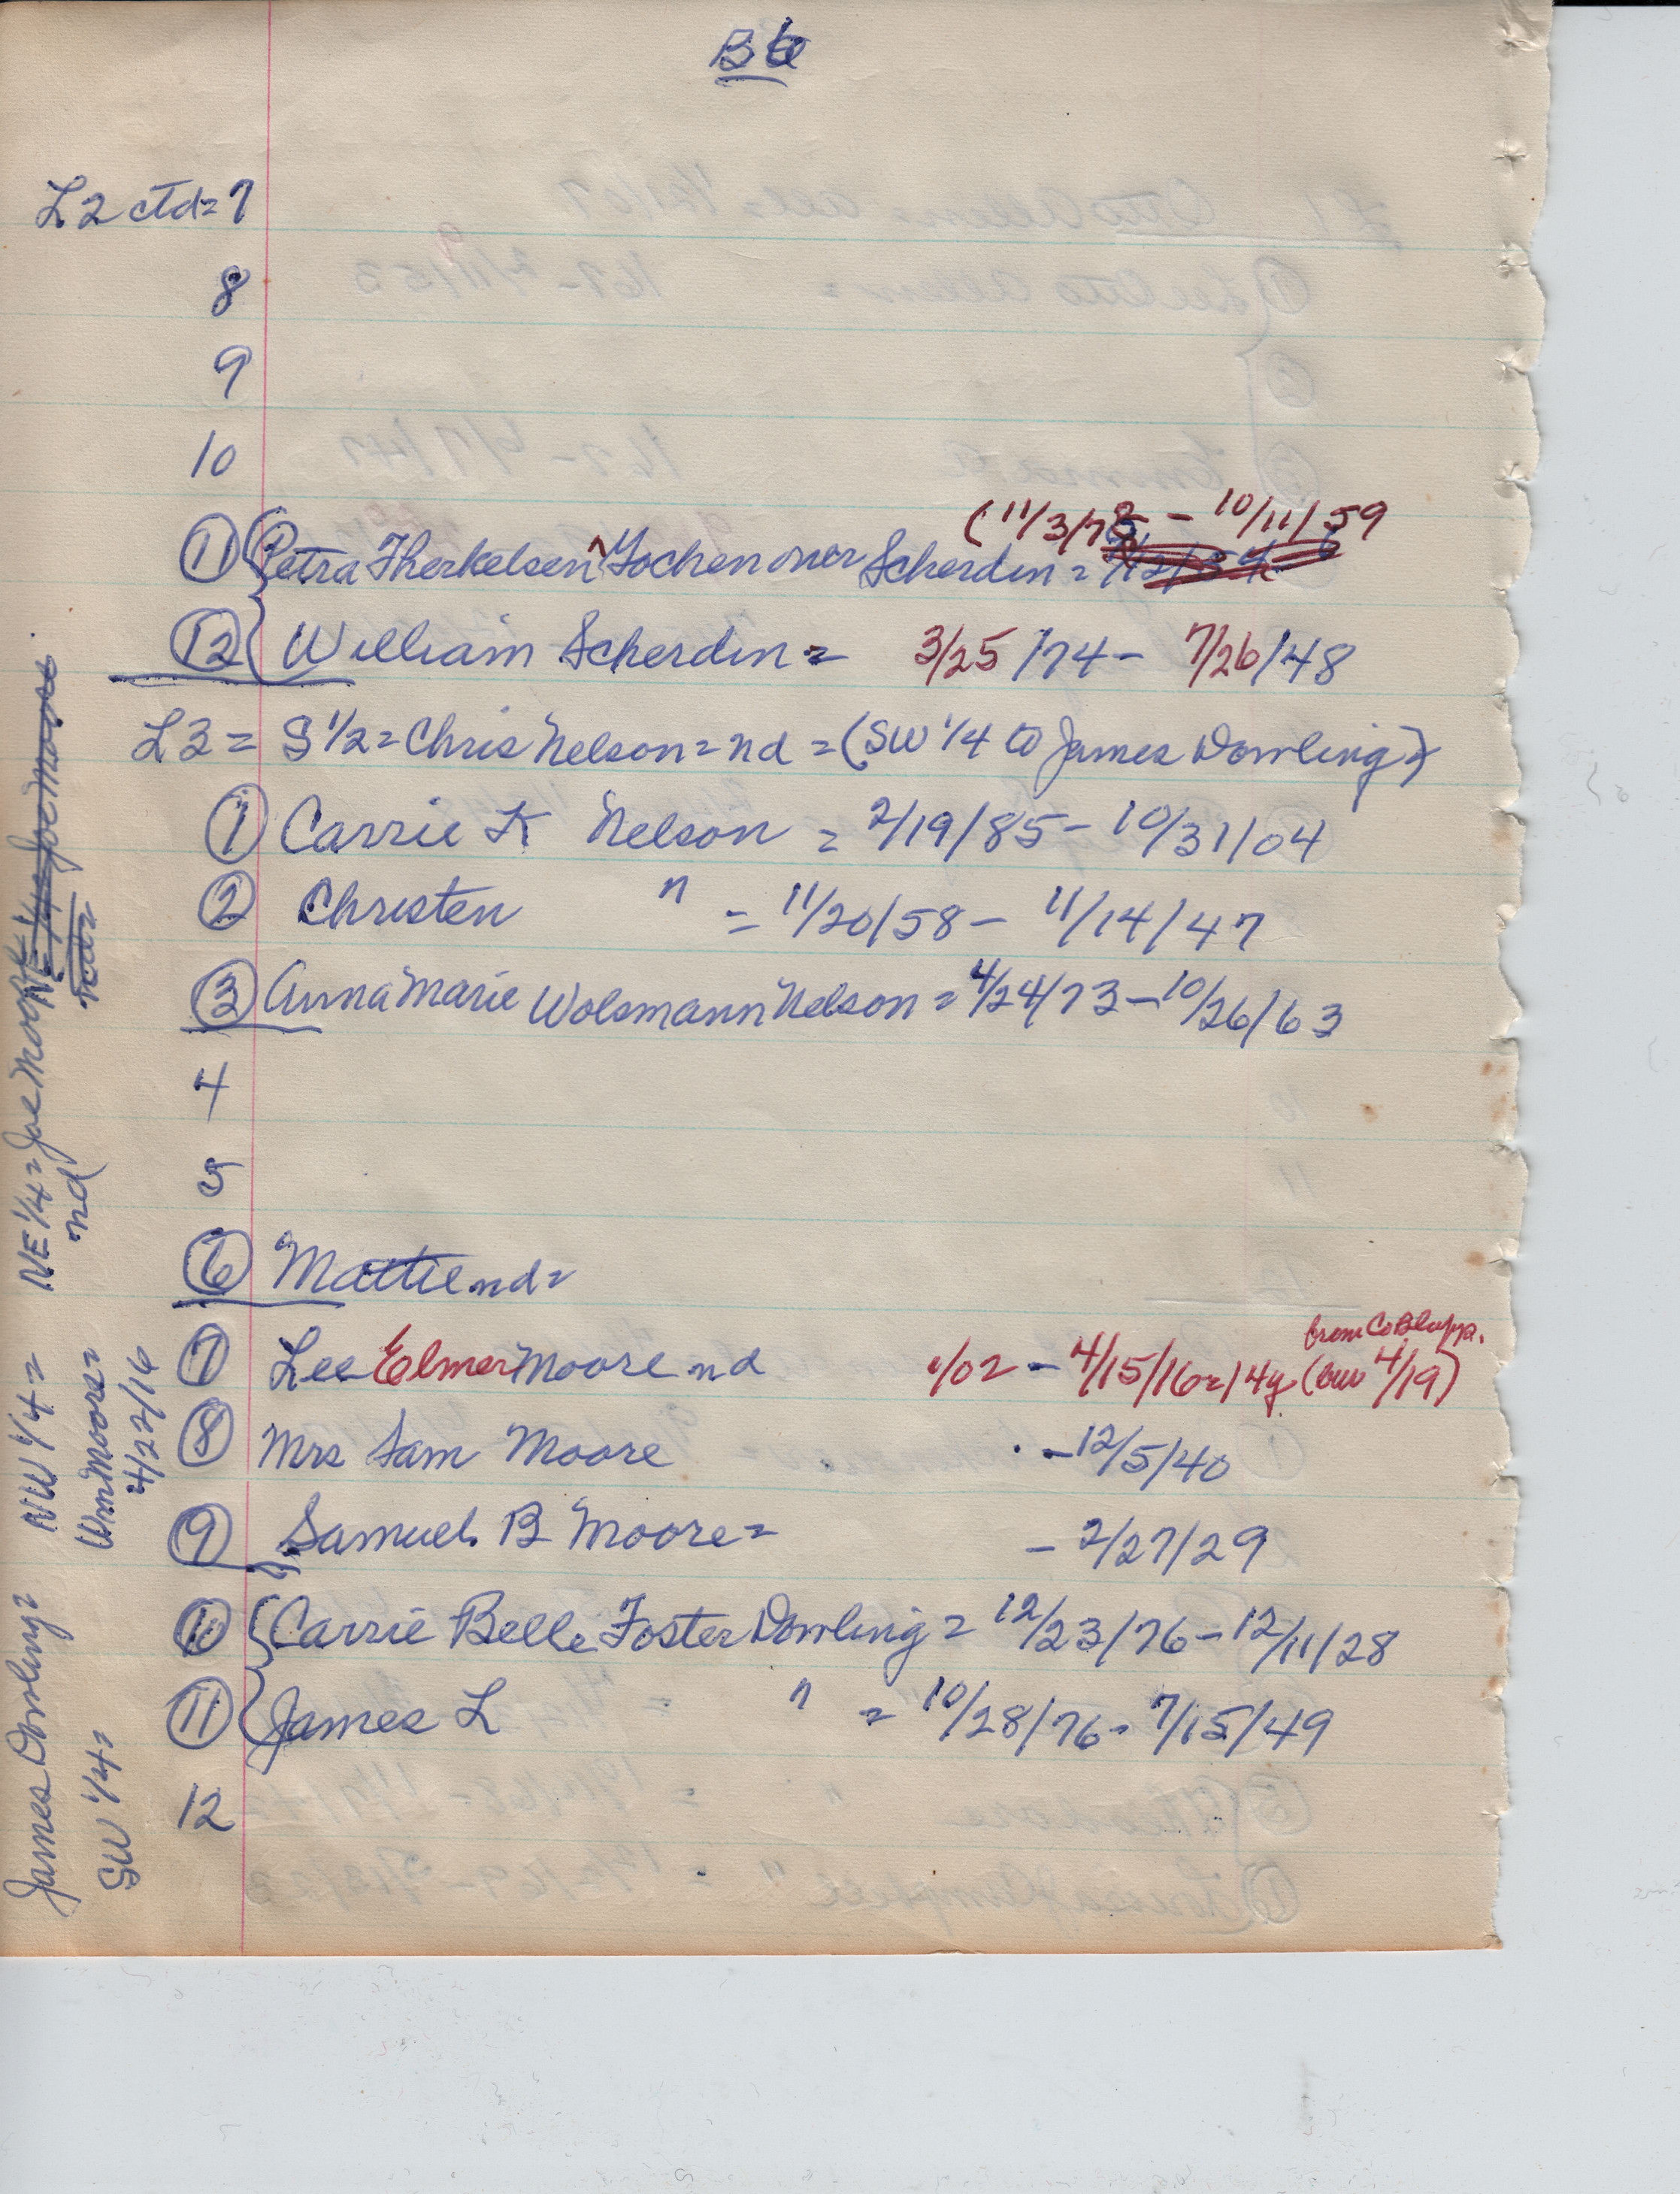 B6
L2 ctd = 7
8
9
10
(11/3/78 - 10/11/59
11 Petra Therkelsen ^ Jochen over Scherdin =
12 William Scherdin = 3/25/74 - 7/26/48
L3 = S 1/2 = Chris Nelson = nd = (SW 1/4 to James Dowling)
1 Carrie K Nelson = 2/19/85 - 10/31/04
2 Christen " = 11/20/58 - 11/14/47
3 Anna Marie Wolsmann Nelson = 4/24/73 - 10/26/63
4
5
6 Mattie nd =
from Co B
7 Lee Elmer Moore nd 1/02 - 4/15/16 = 14y (bur 4/19)
8 Mrs Sam Moore - 12/5/40
9 Samuel B Moore = - 2/27/29
10 Carrie Belle Foster Dowling = 12/23/76 - 12/11/28
11 James L " = 10/28/76 - 7/15/49
12
James Dowling =
SW 1/4 =
NW 1/4 =
Wm Moore =
4/22/16
NE 1/4 = Joe Moore
nd
NE 1/4 = Joe Moore
nd =